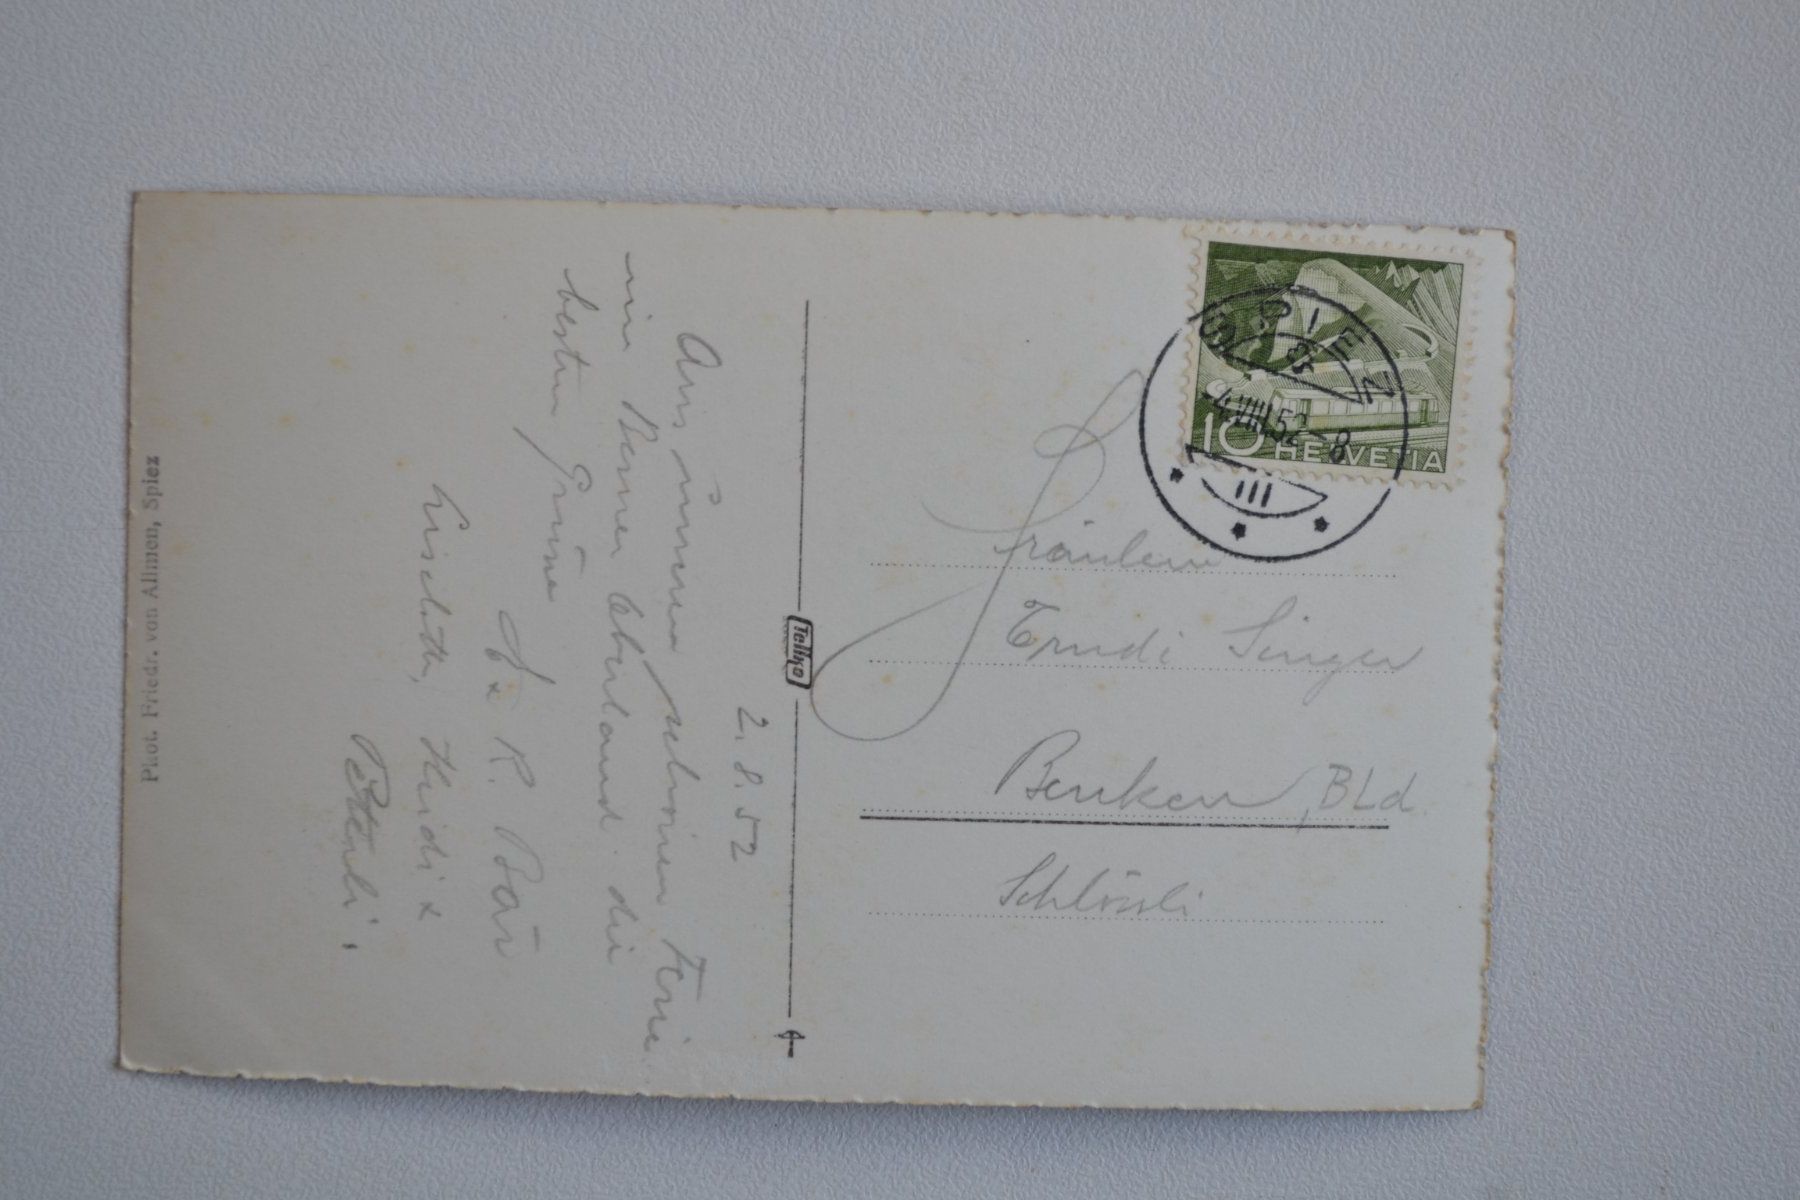 2. 8. 52
Aus unseren schönen Ferien
im Berner Oberland die
besten Grüsse
R. Bär
Liselotte, Heidi &
Phot. Friedr. von Allmen, Spiez
Tellko
SPIEZ
-4.VIII.52-8
III
10 HELVETIA
Fräulein
Trudi Singer
Benken, BLd
Schlössli